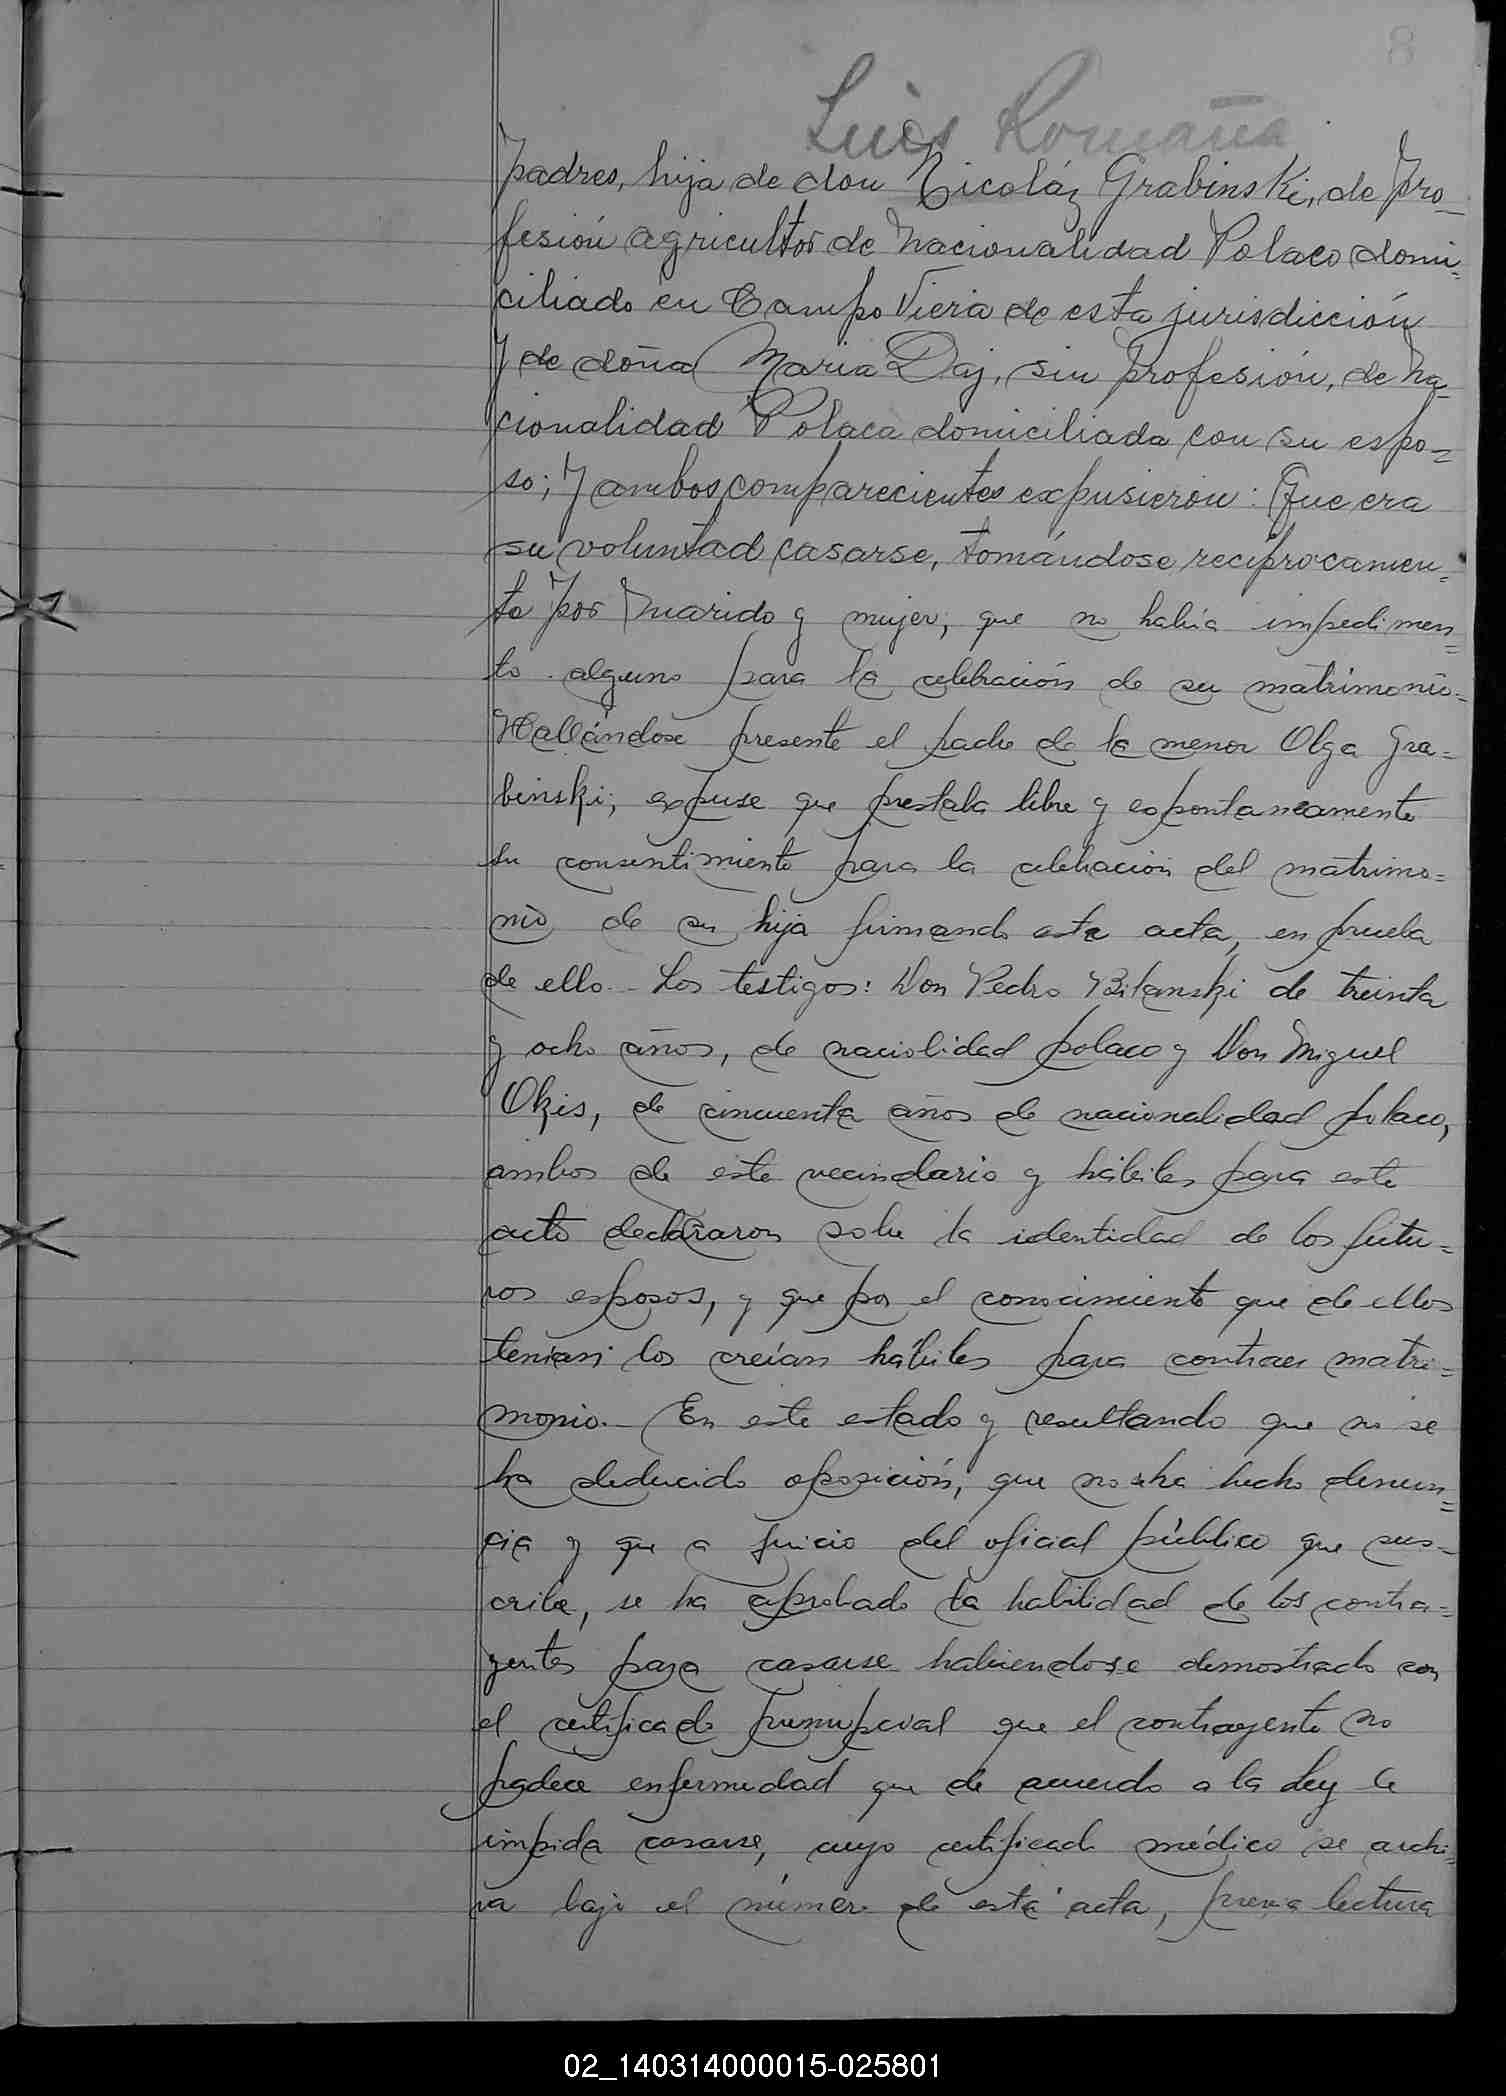 8
Luis Romaña
padres, hija de don Nicoláz Grabinski, de pro-
fesión agricultor de nacionalidad Polaco domi-
ciliado en Campo Viera de esta jurisdicción
y de doña Maria Daj, sin profesión, de na-
cionalidad Polaca domiciliada con su espo-
so; y ambos comparecientes expusieron: Que era
su voluntad casarse, tomándose reciprocamen-
te por marido y mujer, que no había impedimen-
to alguno para la celebración de su matrimonio-
Hallándose presente el padre de la menor Olga Gra-
binski; expuse que prestaba libre y espontaneamente
su consentimiento para la celebración del matrimo-
nio de su hija firmando esta acta, en prueba
de ello.- Los testigos: Don Pedro Bilanski de treinta
y ocho años, de naciolidad polaco y Don Miguel
Okis, de cincuenta años de nacionalidad polaco,
ambos de este vecindario y hábiles para este
acto declararon sobre la identidad de los futu-
ros esposos, y que por el conocimiento que de ellos
tenian los creían hábiles para contraer matri-
monio.- En este estado y resultando que no se
ha deducido oposición, que no se ha hecho denun-
cia y que a juicio del oficial público que sus-
cribe, se ha aprobado la habilidad de los contra-
yentes para casarse habiendose demostrado con
el certificado prenupcial que el contrayente no
padece enfermedad que de acuerdo a la Ley le
impida casarse, cuyo certificado médico se archi-
va bajo el número de esta acta, previa lectura
02_140314000015-025801